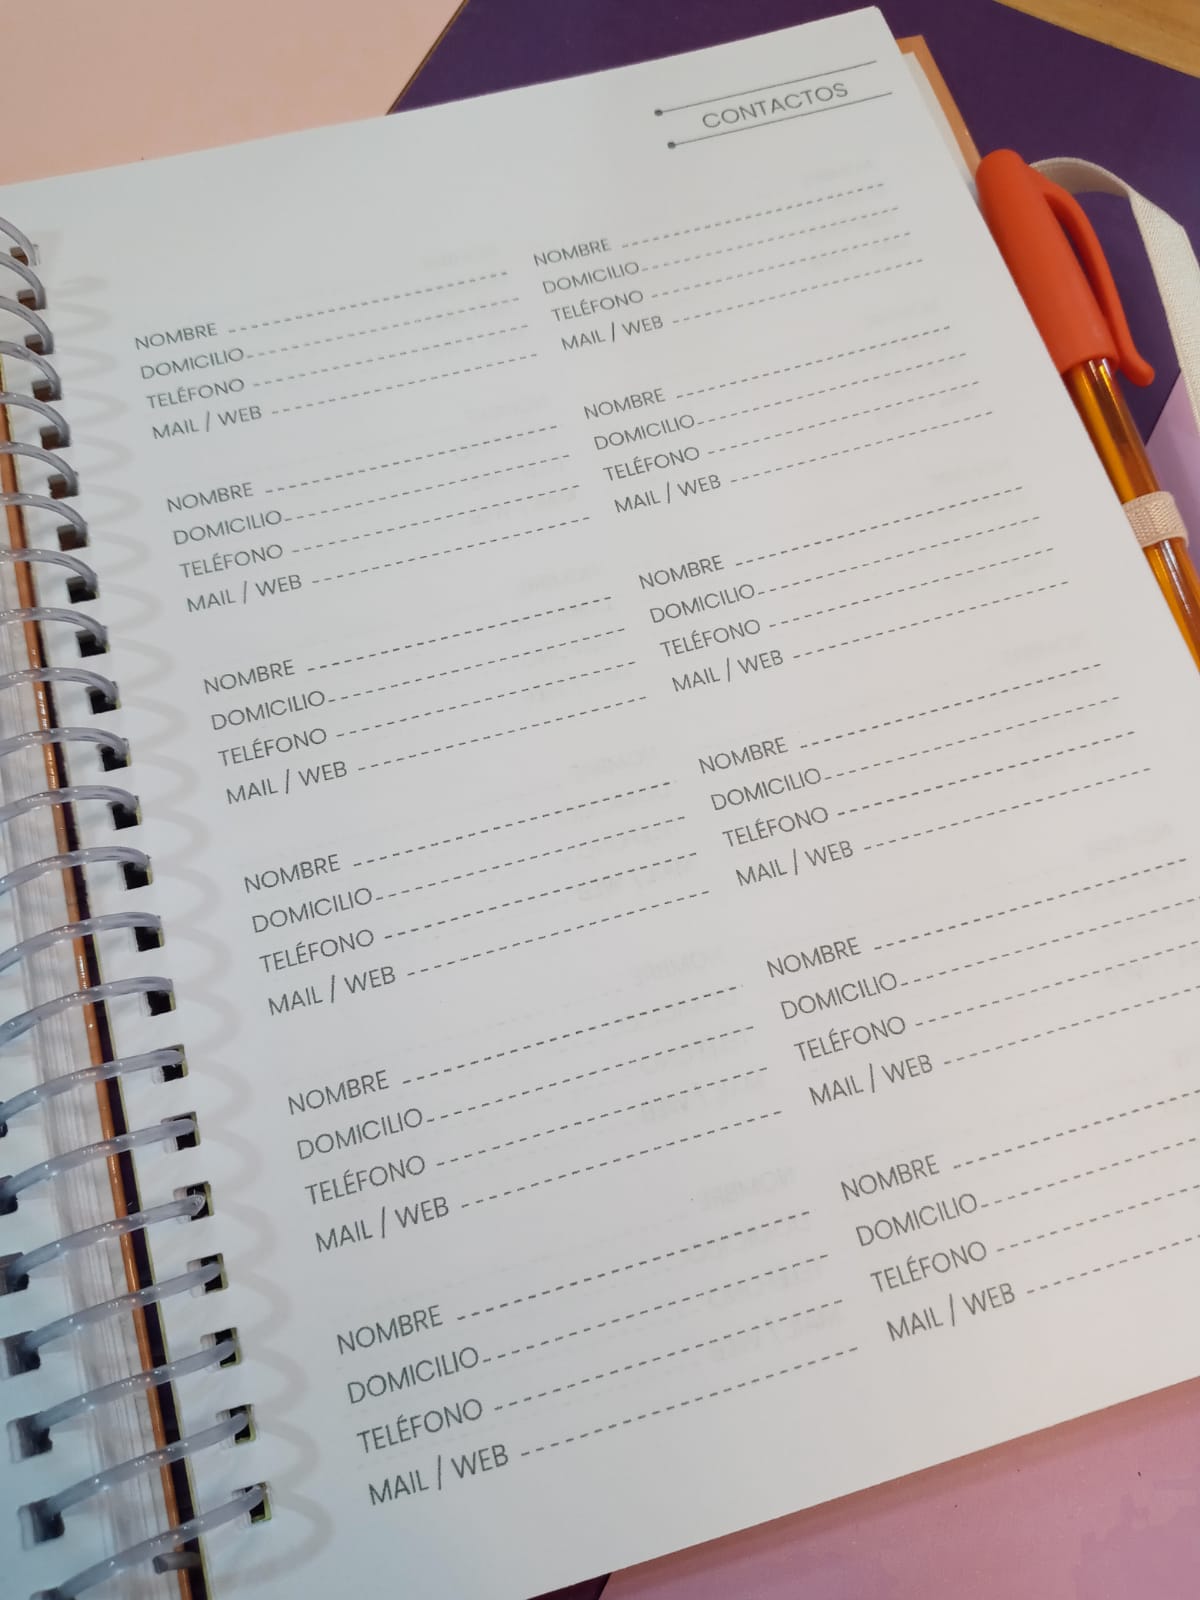 CONTACTOS
NOMBRE
DOMICILIO
TELÉFONO
MAIL / WEB
NOMBRE
DOMICILIO
TELÉFONO
MAIL / WEB
NOMBRE
DOMICILIO
TELÉFONO
MAIL / WEB
NOMBRE
DOMICILIO
TELÉFONO
MAIL / WEB
NOMBRE
DOMICILIO
TELÉFONO
MAIL / WEB
NOMBRE
DOMICILIO
TELÉFONO
MAIL / WEB
NOMBRE
DOMICILIO
TELÉFONO
MAIL / WEB
NOMBRE
DOMICILIO
TELÉFONO
MAIL / WEB
NOMBRE
DOMICILIO
TELÉFONO
MAIL / WEB
NOMBRE
DOMICILIO
TELÉFONO
MAIL / WEB
NOMBRE
DOMICILIO
TELÉFONO
MAIL / WEB
NOMBRE
DOMICILIO
TELÉFONO
MAIL / WEB